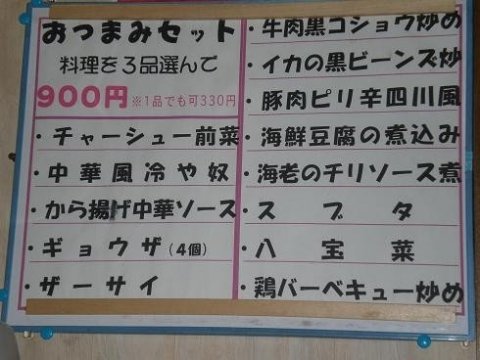 おつまみセット
料理を3品選んで
900円 ※1品でも可330円
・チャーシュー前菜
・中華風冷や奴
・から揚げ中華ソース
・ギョウザ(4個)
・ザーサイ
・牛肉黒コショウ炒め
・イカの黒ビーンズ炒
・豚肉ピリ辛四川風
・海鮮豆腐の煮込み
・海老のチリソース煮
・スブタ
・八宝菜
・鶏バーベキュー炒め